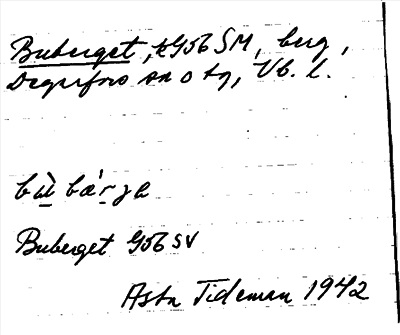 Buberget, kG56 SM, berg,
Degerfors sn o tg, Vb. l.
bù bær̀ʒə
Buberget G56 SV
Asta Tideman 1942